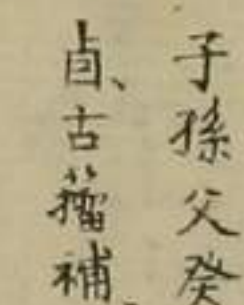 子孫父癸
卣、古籀補